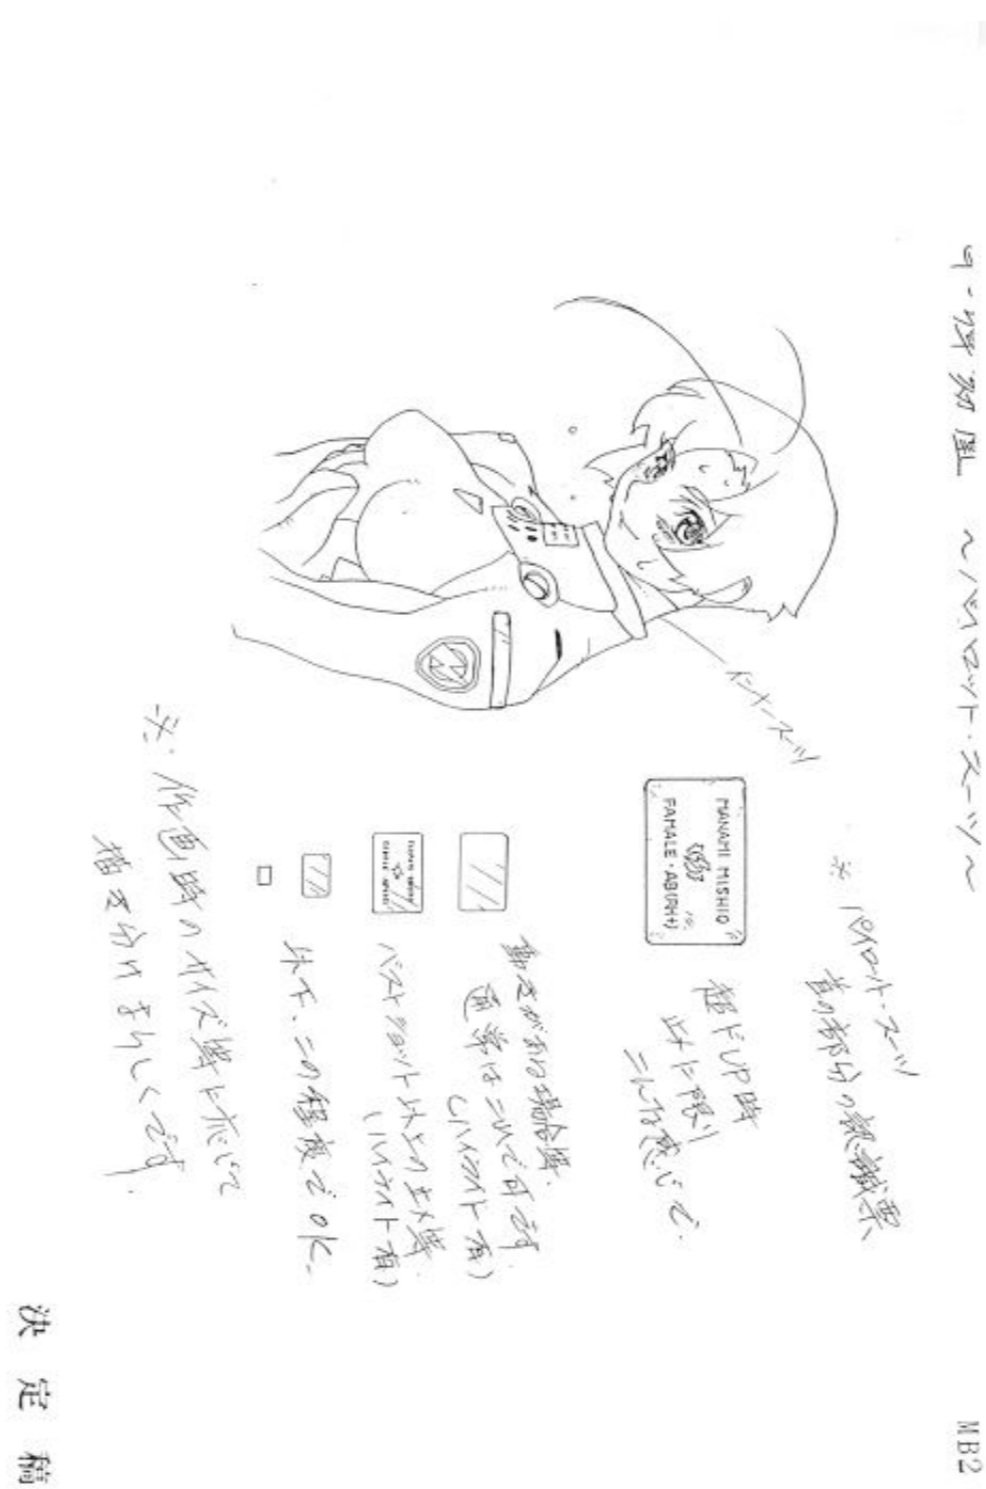 ~パイロット・スーツ~
MB2
インナースーツ
※ パイロット・スーツ
首の部分の認識票
MANAMI MISHIO
FAMALE・AB(RH+)
超ドUP時
止メに限り
こんな感じで.
動きがある場合等.
通常はこれで可です
(ハイライト有)
バストショット以上の止メ等.
(ハイライト有)
以下、この程度でOK.
※ 作画時のサイズ等に応じて
描き分けよろしくです.
決定稿